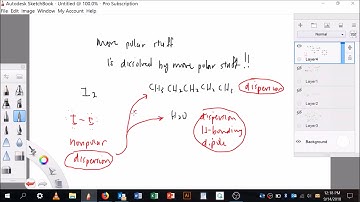 Autodesk SketchBook - Untitled @ 100.0% - Pro Subscription
File Edit Image Window My Account Help
more polar stuff
is dissolved by more polar stuff!!
I2
CH3 CH2 CH2 CH2 CH3 dispersion
I - I
H2O
dispersion
H-bonding
dipole
nonpolar
dispersion
Layer4
Layer3
Layer2
Layer1
12:18 PM
9/14/2018